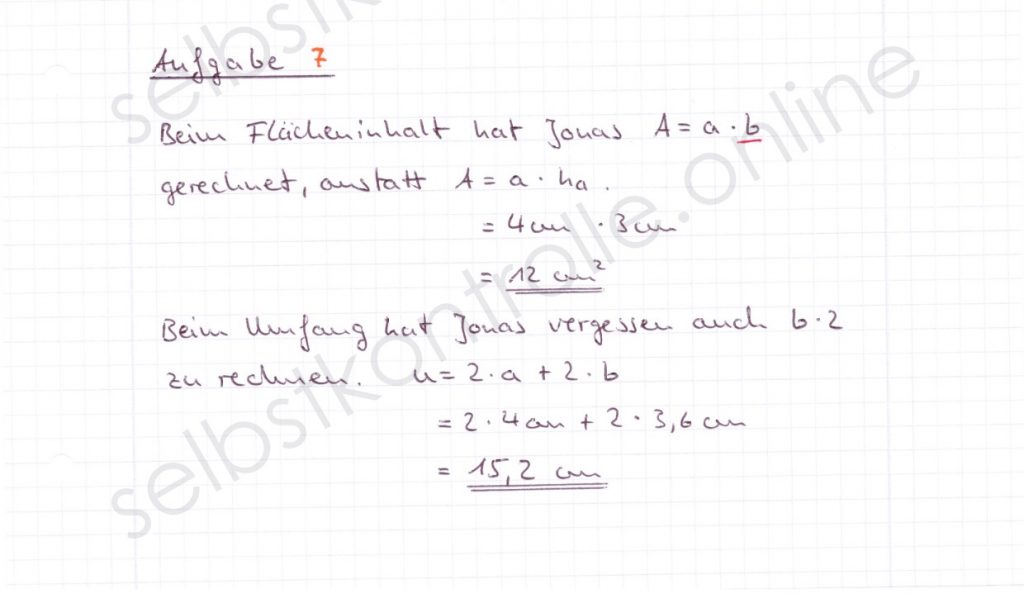 Aufgabe 7
Beim Flächeninhalt hat Jonas A = a · b
gerechnet, anstatt A = a · ha.
= 4cm · 3cm
= 12 cm²
Beim Umfang hat Jonas vergessen auch b·2
zu rechnen. u = 2·a + 2·b
= 2·4cm + 2·3,6cm
= 15,2 cm
selbstkontrolle.online
selbstk